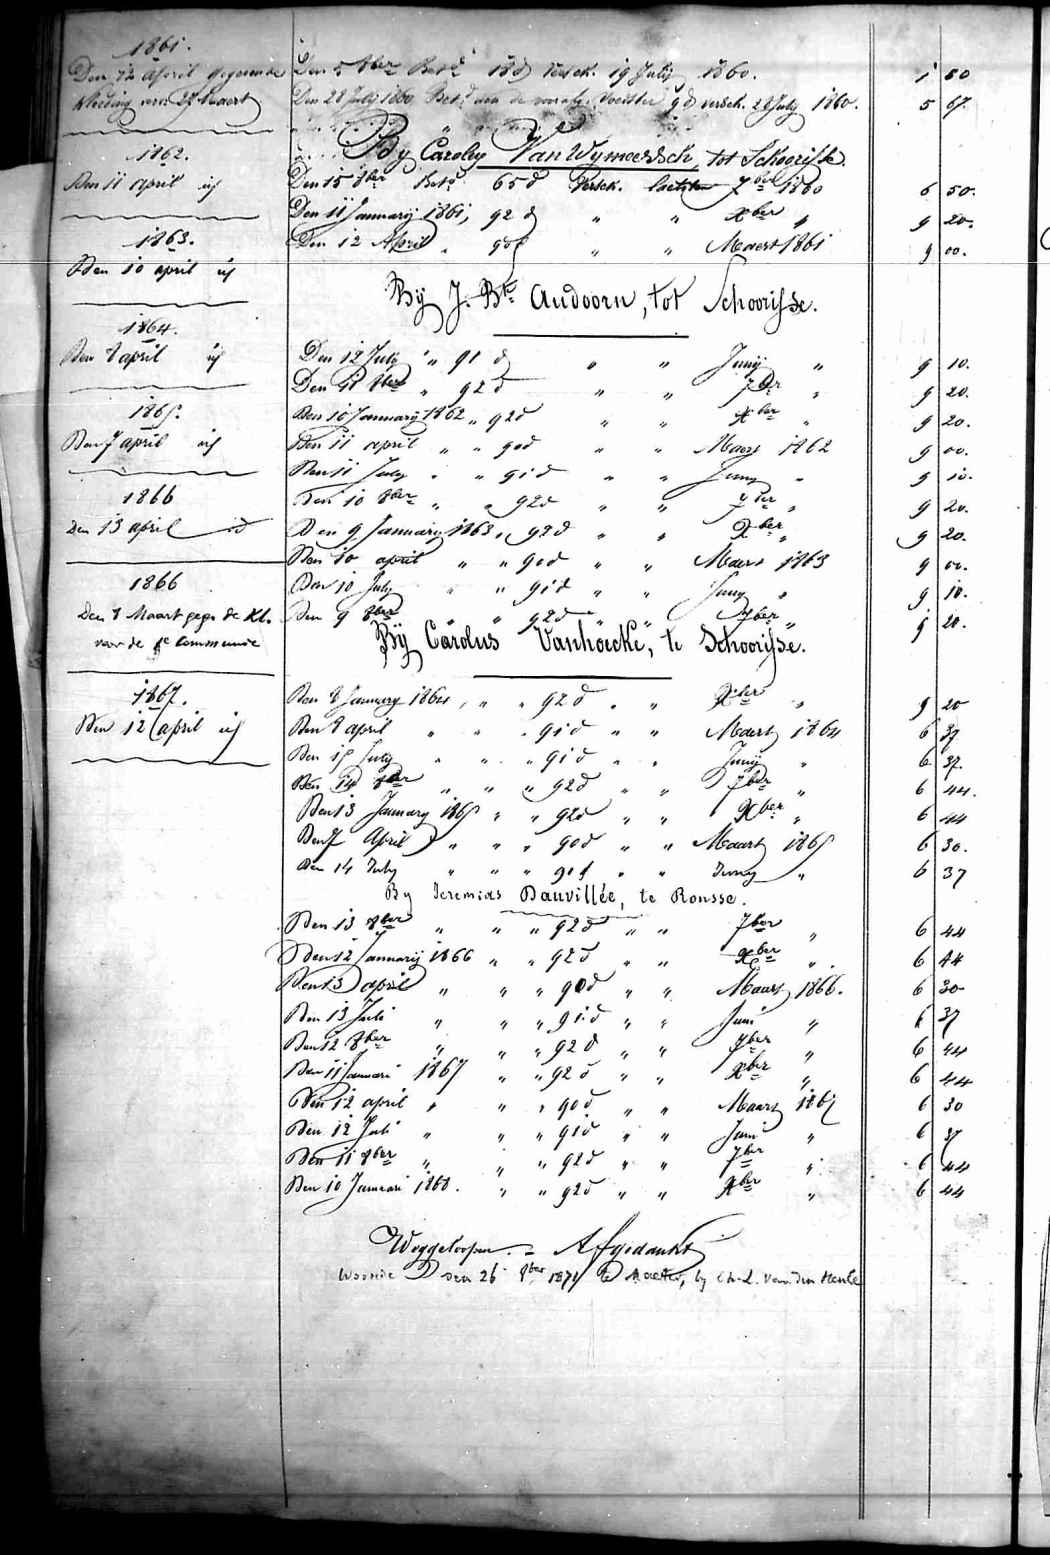 1861.
Den 12 april gegevende
kleeding vern 27 maart
1862.
Den 11 april id
1863.
Den 10 april id
1864.
Den 8 april id
1865.
Den 7 april id
1866
Den 13 april id
1866
Den 8 Maart gegn de Kl.
voor de 1e Communie
1867.
Den 12 april id
Den 5 8ber Betd 15 d Versch. 19 July 1860. 1 50
Den 28 July 1860 Betd aan de voorsz. Voedster 9 d versch. 28 July 1860. 5 67.
By Caroley Van Wymeersch, tot Schoorisse.
Den 15 8ber Betd 65 d Versch. laetsten 7ber 1860 6 50.
Den 11 January 1861, 92 d " " Xber " 9 20.
Den 12 April " 90 d " " Maert 1861 9 00.
By J. Bte Audoorn, tot Schoorisse.
Den 12 July " " 91 d " " Junij " 9 10.
Den 11 8ber " 92 d " " 7ber " 9 20.
Den 10 January 1862 " 92 d " " Xber " 9 20.
Den 11 april " " 90 d " " Maert 1862 9 00.
Den 11 July " " 91 d " " Juny " 9 10.
Den 10 8ber " " 92 d " " 7ber " 9 20.
Den 9 January 1863 " 92 d " " Xber " 9 20.
Den 10 april " " 90 d " " Maert 1863 9 00.
Den 10 July " " 91 d " " Juny " 9 10.
Den 9 8ber " " 92 d " " 7ber " 9 20.
By Carolus Vanhoecke, te Schoorisse.
Den 8 January 1864, " " 92 d " " Xber " 9 20
Den 8 april " " " 91 d " " Maert 1864 6 37
Den 15 July " " " 91 d " " Junij " 6 37.
Den 14 8ber " " " 92 d " " 7ber " 6 44.
Den 13 January 1865 " " 92 d " " Xber " 6 44
Den 7 April " " " 90 d " " Maart 1865 6 30.
Den 14 July " " " 91 d " " Juny " 6 37
By Jeremias Dauvillée, te Ronsse.
Den 13 8ber " " " 92 d " " 7ber " 6 44
Den 12 Januarij 1866 " " 92 d " " Xber " 6 44
Den 13 april " " " 90 d " " Maart 1866. 6 30
Den 13 Juli " " " 91 d " " Juni " 6 37
Den 12 8ber " " " 92 d " " 7ber " 6 44
Den 11 Januari 1867 " " 92 d " " Xber " 6 44
Den 12 april " " " 90 d " " Maart 1867 6 30
Den 12 Juli " " " 91 d " " Juni " 6 37
Den 11 8ber " " " 92 d " " 7ber " 6 44
Den 10 Januari 1868. " " 92 d " " Xber " 6 44
Weggeloopen. = Afgedankt
Woonde den 26 8ber 1871 te , by Ch. L. Van den Heule